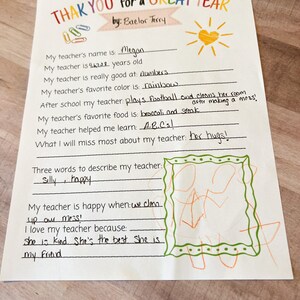 THANK YOU for a GREAT YEAR
by: Baelor Terry
My teacher's name is Megan
My teacher is years old
My teacher is really good at: numbers
My teacher's favorite color is: rainbow
After school my teacher plays football and cleans her room
after making a mess!
My teacher's favorite food is: broccoli and steak
My teacher helped me learn: A,B,C's!
What I will miss most about my teacher: her hugs!
Three words to describe my teacher:
silly, happy
My teacher is happy when we clean
up our mess!
I love my teacher because:
she is kind She's the best She is
my friend